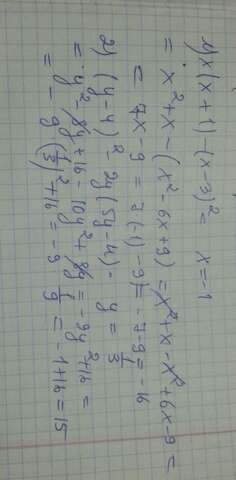 1) x(x+1)-(x-3)²= x=-1
= x²+x-(x²-6x+9)=x²+x-x²+6x-9=
= 7x-9=7·(-1)-9=-7-9=-16
2) (y-4)²-2y(5y-4)= y=1/3
= y²-8y+16-10y²+8y=-9y²+16=
= -9(1/3)²+16=-9·1/9=-1+16=15